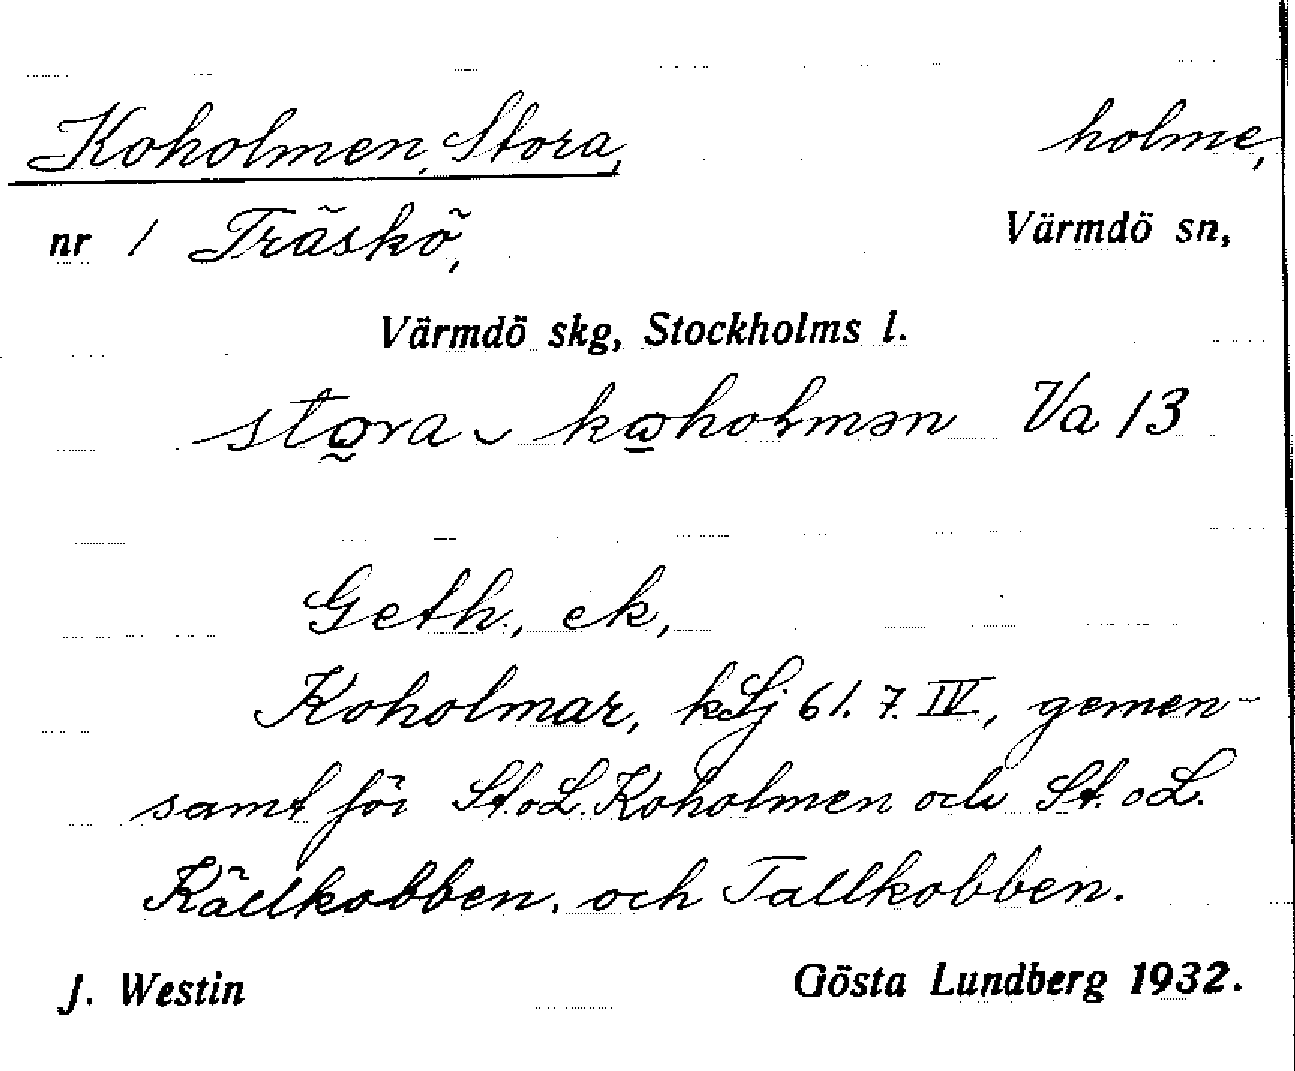 Koholmen, Stora, holme,
nr 1 Träskö, Värmdö sn,
Värmdö skg, Stockholms l.
Va 13
Geth., ek,
Koholmar, kLj 61. 7. IV, gemen-
samt för St. o L. Koholmen och St. o L.
Källkobben. och Tallkobben.
J. Westin Gösta Lundberg 1932.